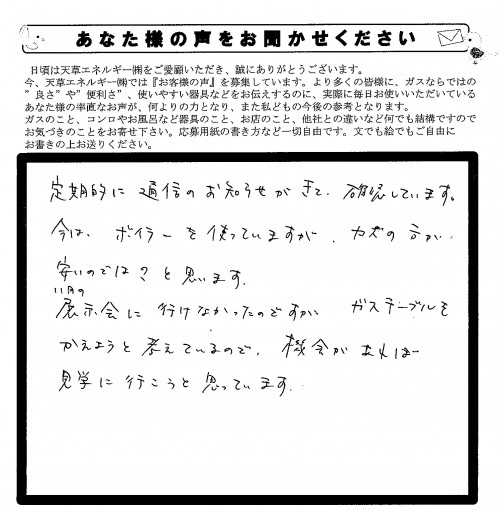 あなた様の声をお聞かせください
日頃は天草エネルギー㈱をご愛顧いただき、誠にありがとうございます。
今、天草エネルギー㈱では『お客様の声』を募集しています。より多くの皆様に、ガスならではの
”良さ”や”便利さ”、使いやすい器具などをお伝えするのに、実際に毎日お使いいただいている
あなた様の率直なお声が、何よりの力となり、また私どもの今後の参考となります。
ガスのこと、コンロやお風呂など器具のこと、お店のこと、他社との違いなど何でも結構ですので
お気づきのことをお寄せ下さい。応募用紙の書き方など一切自由です。文でも絵でもご自由に
お書きの上お送りください。
定期的に通信のお知らせがきて、確認しています。
今は、ボイラーを使っていますが、ガスの方が
安いのでは？と思います。
11月の
展示会に行けなかったのですが、ガステーブルを
かえようと考えているので、機会があれば
見学に行こうと思っています。